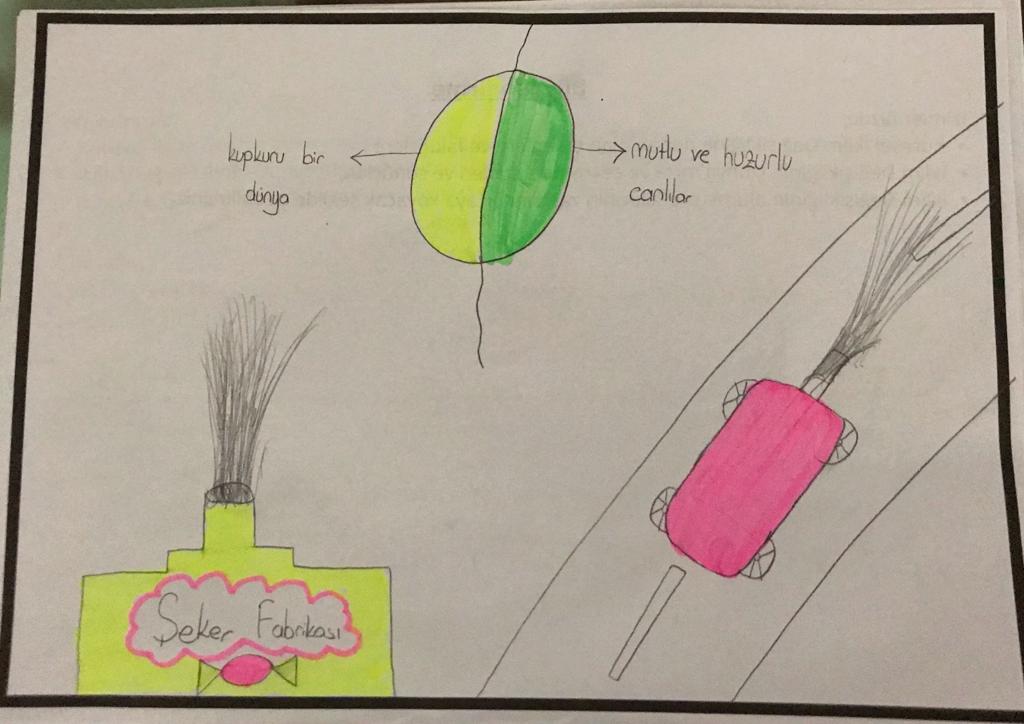 kupkuru bir
dünya
mutlu ve huzurlu
canlılar
Şeker Fabrikası